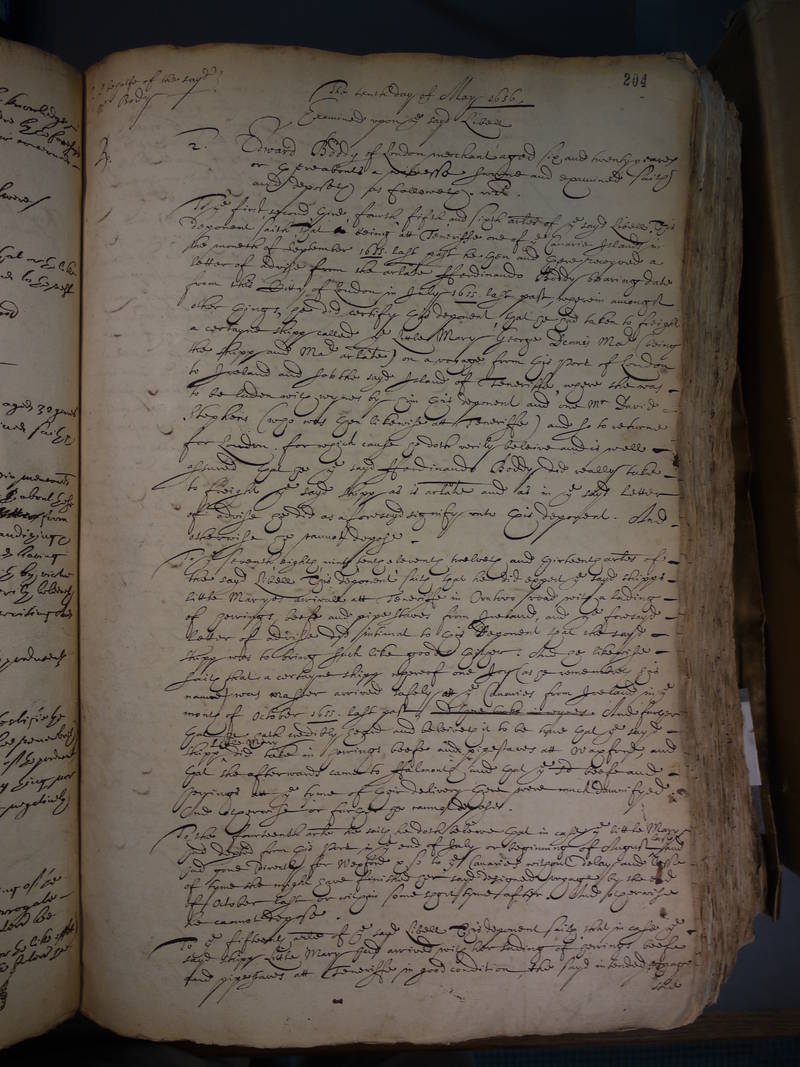 204
behalfe of the sayd
Boddy
The tenth day of May 1656.
Examined upon ye sayd Libell
2. Edward Boddy of London merchant aged six and twenty yeares
or thereabouts a witnesse sworne and examined saith
and deposeth as followeth. vizt.
To ye first, second, third, fourth, fifth and sixth artes of ye sayd Libell this
deponent saith that being att Teneriffe one of ye Canarie Islands in
the moneth of September 1655. last past hee then and there receyved a
letter of advise from the arlate Ffardinando Boddy bearing date
from this Citty of London in July 1655. last past, wherein amongst
other things, hee did certify this deponent, that hee had taken to freight
a certayne shipp called ye little Mary (George Dennis Mar being
the shipp and Mar arlate) on a voyage from this Port of London
to Ireland and soe to the sayd Island of Teneriffe, where shee was
to be laden with wynes by him this deponent and one Mr David
Stephens (who was then likewise att Teneriffe) and so to returne
for London. for which cause hee doth verily beleive and is well
assured that hee ye sayd Ffardinando Boddy did really take
to freight ye sayd shipp as is arlate and as in ye sayd letter
of advise hee did as aforesayd signify unto this deponent. And
otherwise hee cannot depose.
To ye seventh eighth ninth tenth eleventh twelveth and thirteenth artes of
the sayd Libell this deponent saith that hee did expect ye sayd shipp
little Maryes arrivall att Teneriffe in Oratavo road with a lading
of herrings, beefe and pipestaves from Ireland, and ye foresayd
letter of advise did intimat to this deponent that the sayd
shipp was to bring such like goods thither. And hee likewise
saith that a certayne shipp whereof one Joy (as hee remembers his
name) was master arrived safely at ye Canaries from Ireland in ye
moneth of October 1655. last past And further
that hee hath credibly heard and beleeveth it to be true that ye sayd
shipp little Mary did take in herrings, beefe and pipestaves att Waxford, and
that she afterwards came to Ffalmouth and that ye sd beefe and
herrings at ye tyme of their delivery there were much damnifyed
And otherwise or further hee cannot depose.
To the fourteenth arte he saith he doth beleeve that in case ye little Mary
had departed from this Port in ye end of July or beginning of August and
had gone directly for Wexford & so to ye Canaries without delay and losse
of tyme she might have finished her sayd designed voyage by the end
of October last or within some short tyme after. And otherwise
he cannot depose.
To ye fifteenth arte of ye sayd Libell this deponent saith that in case ye
sayd shipp little Mary had arrived with her lading of herrings beefe
and pipestaves att Teneriffe in good condition, the sayd intended voyage
the